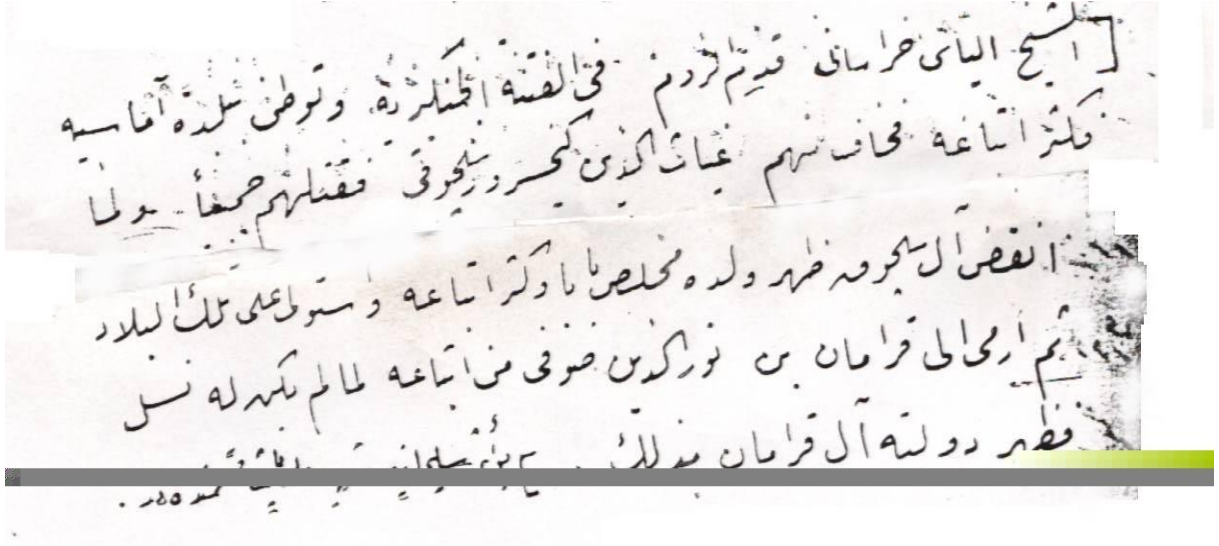 [ الشيخ الياس خراسانى قديم الروم فى الفتنة الجنكزية وتوطن بلدة آماسيه
فكثر اتباعه فخاف منهم غياث الدين كيخسرو سلجوقى فقتلهم جميعاً ولما
انقض آل سلجوق ظهر ولده مخلص بابا وكثر اتباعه واستولى على تلك البلاد
ثم ارمى الى قرامان بن نور الدين صوفى من اتباعه لما لم يكن له نسل
فظهر دولة آل قرامان من ذلك